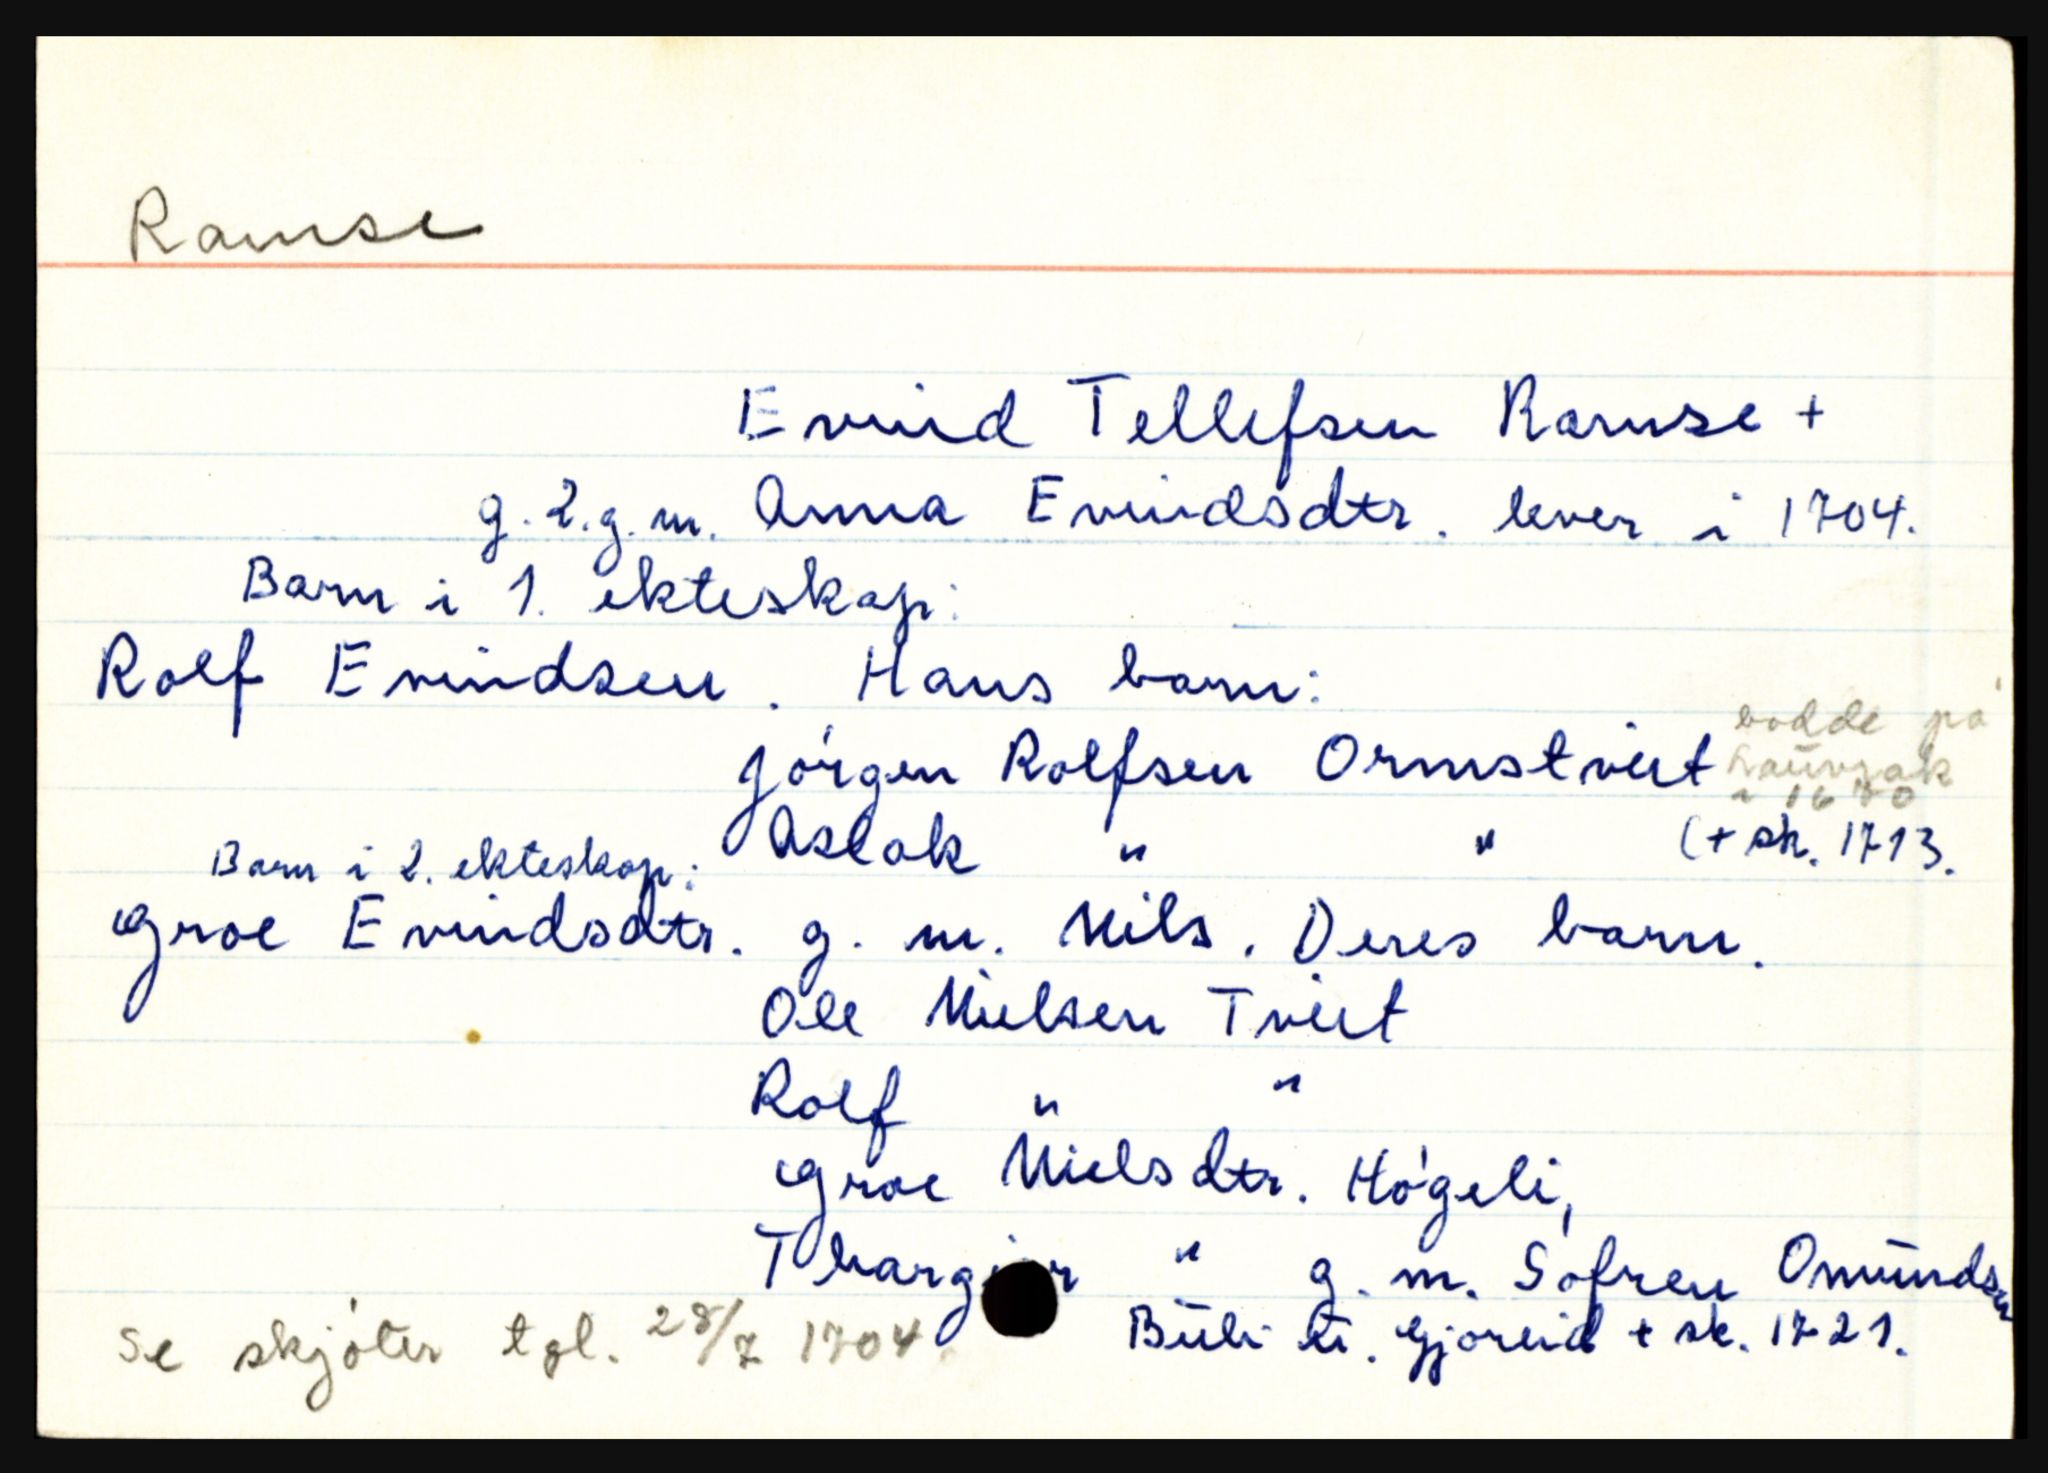 Ramse
Evind Tellefsen Ramse +
g. 2. g. m. Anna Evindsdtr. lever i 1704.
Barn i 1. ekteskap:
Rolf Evindsen. Hans barn:
bodde på
Jörgen Rolfsen Ormstveit Lauvrak
i 1670
Aslak " " (+ sk. 1713.
Barn i 2. ekteskap:
Groe Evindsdtr. g. m. Nils. Deres barn.
Ole Nielsen Tveit
Rolf " "
Groe Nielsdtr. Högeli,
Thargier " g. m. Söfren Omundsen
Buli i Gjöreid + sk. 1721.
Se skjöter tgl. 28/7 1704.